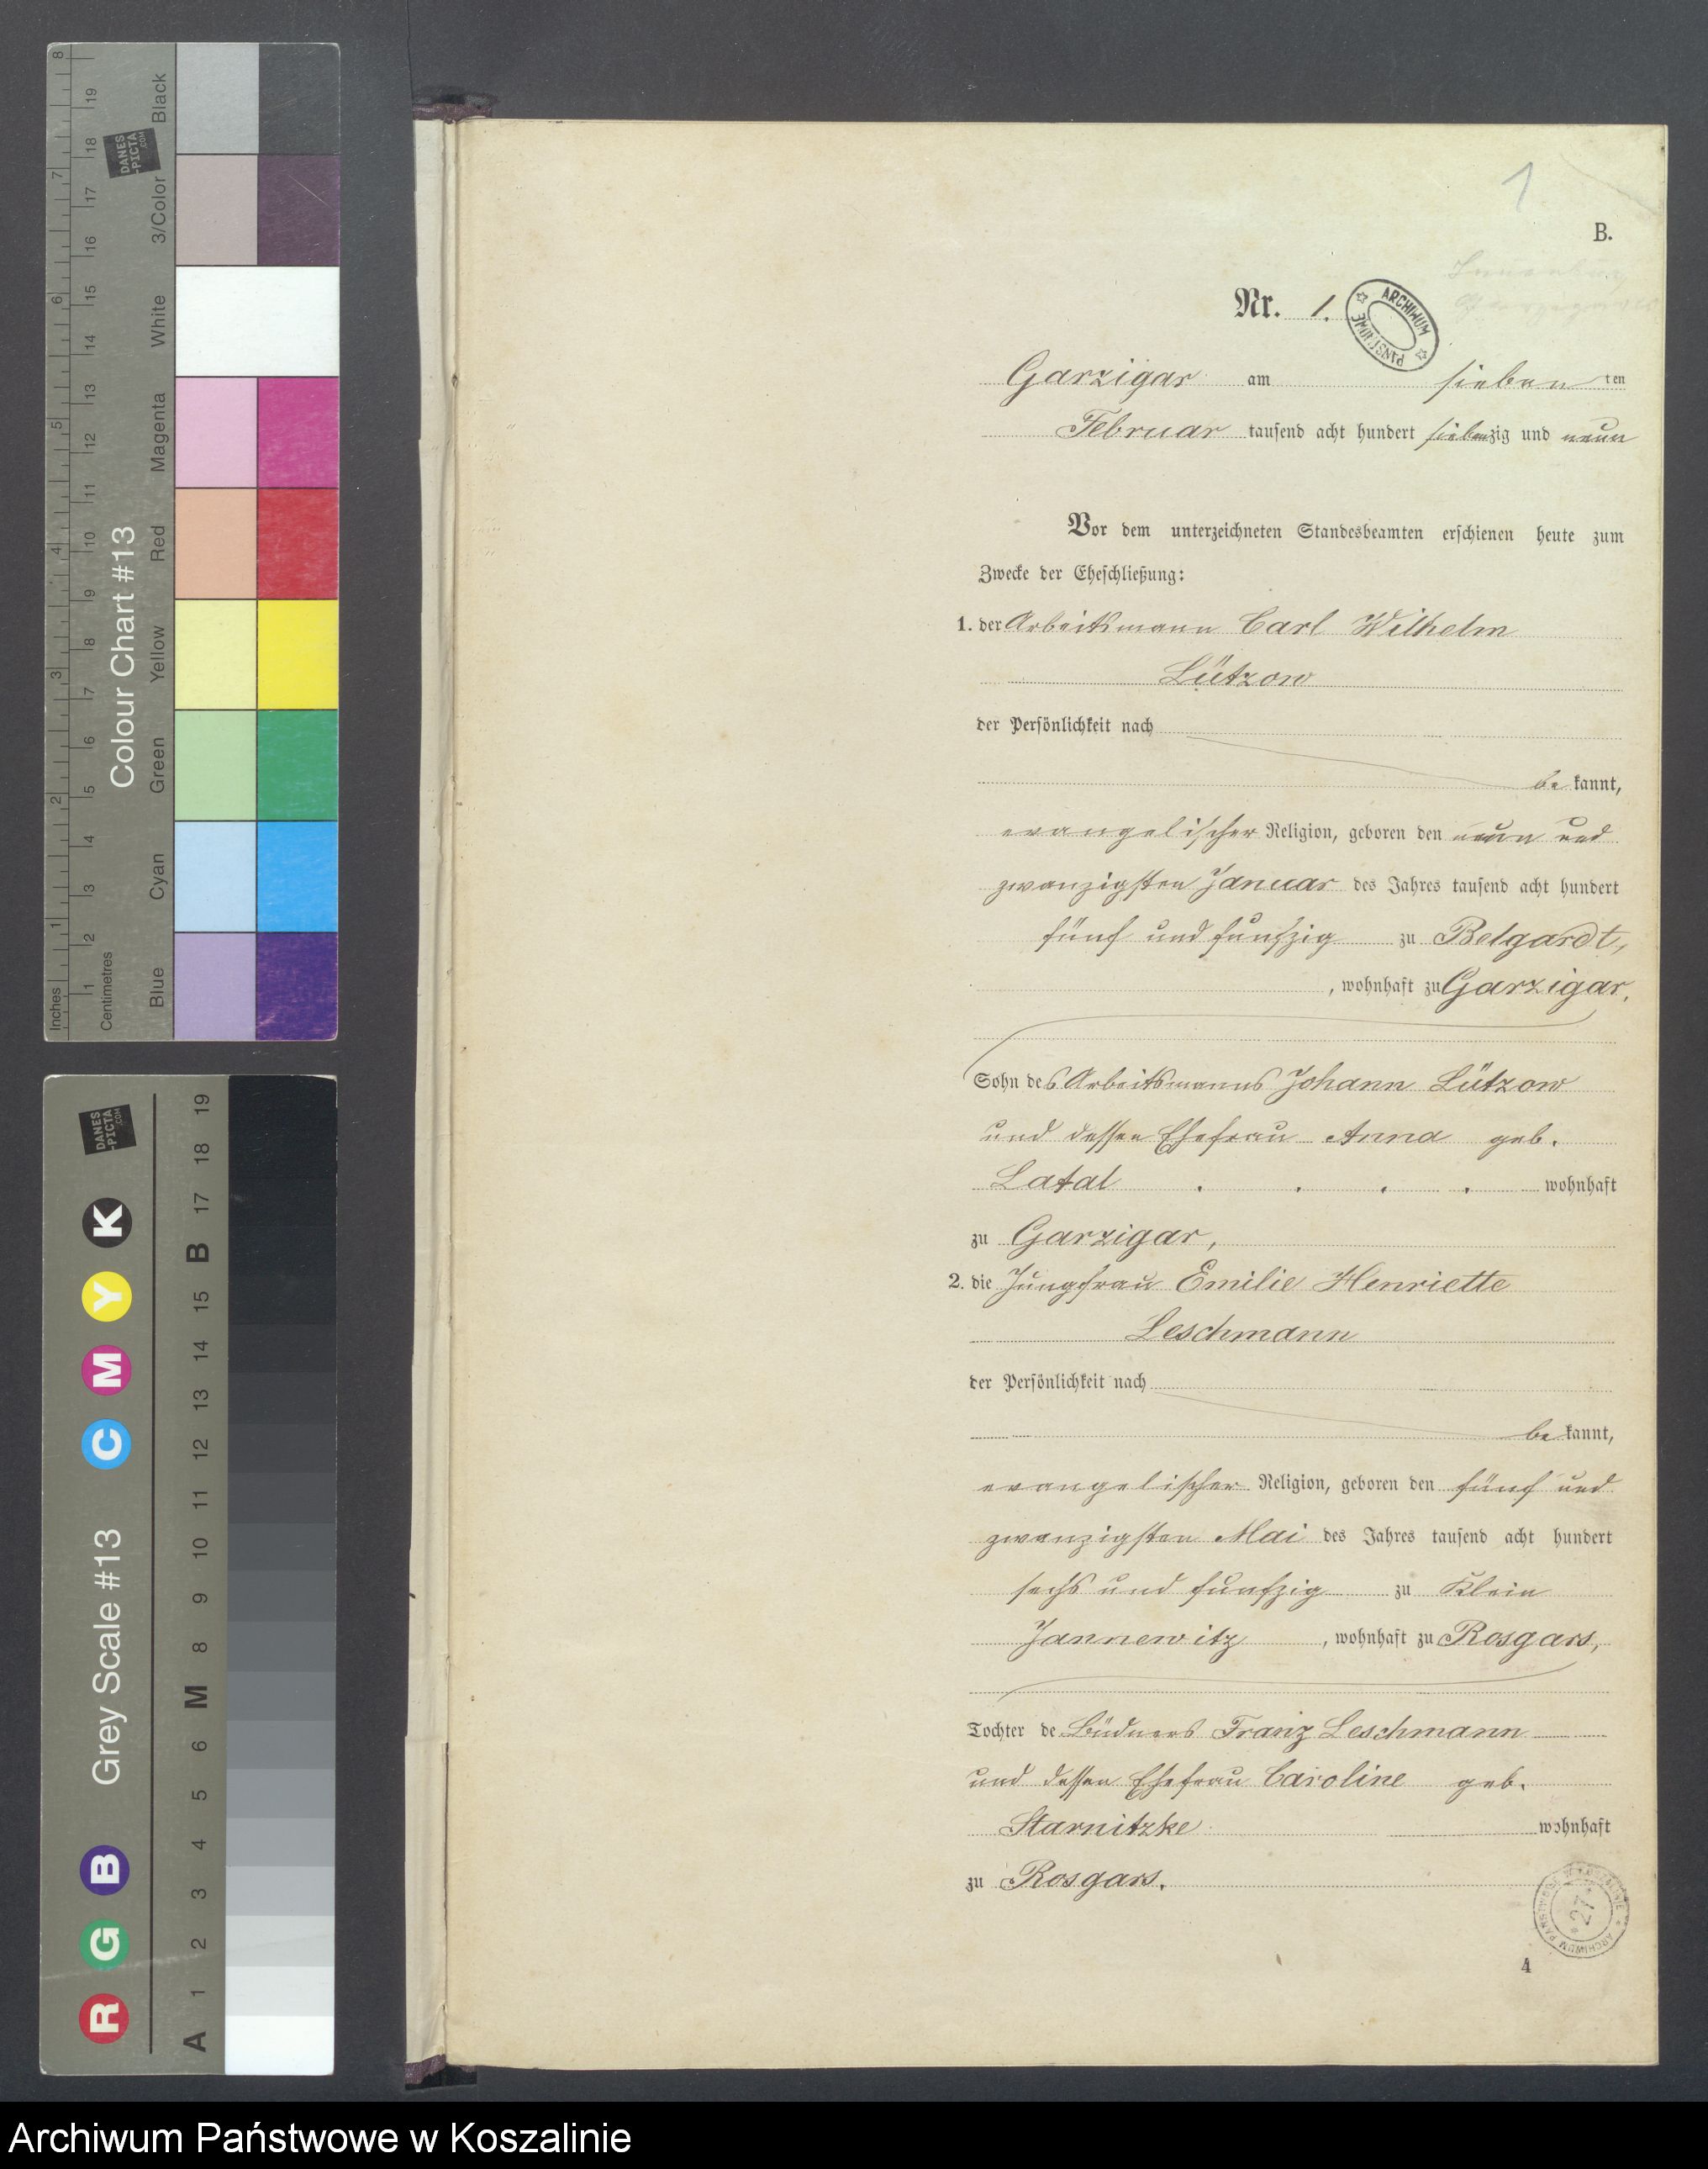 1
B.
Nr. 1.
ARCHIWUM PAŃSTWOWE
Garzigar am sieben ten
Februar tausend acht hundert siebenzig und neun
Vor dem unterzeichneten Standesbeamten erschienen heute zum
Zwecke der Eheschließung:
1. der Arbeitsmann Carl Wilhelm
Lützow
der Persönlichkeit nach
be kannt,
evangelischer Religion, geboren den neun und
zwanzigsten Januar des Jahres tausend acht hundert
fünf und funfzig zu Belgardt,
, wohnhaft zu Garzigar,
Sohn des Arbeitsmanns Johann Lützow
und dessen Ehefrau Anna geb.
Latal . . . . wohnhaft
zu Garzigar,
2. die Jungfrau Emilie Henriette
Leschmann
der Persönlichkeit nach
be kannt,
evangelischer Religion, geboren den fünf und
zwanzigsten Mai des Jahres tausend acht hundert
sechs und funfzig zu Klein
Jannewitz , wohnhaft zu Rosgars,
Tochter de Büdners Franz Leschmann
und dessen Ehefrau Caroline geb.
Starnitzke wohnhaft
zu Rosgars.
ARCHIWUM PAŃSTWOWE W KOSZALINIE
*27*
4
Colour Chart #13
Inches 1 2 3 4 5 6 7 8
Centimetres 1 2 3 4 5 6 7 8 9 10 11 12 13 14 15 16 17 18 19
Blue Cyan Green Yellow Red Magenta White 3/Color Black
DANES
-PICTA
.COM
Grey Scale #13
R G B C M Y K
A 1 2 3 4 5 6 M 8 9 10 11 12 13 14 15 B 17 18 19
DANES
-PICTA
.COM
Archiwum Państwowe w Koszalinie